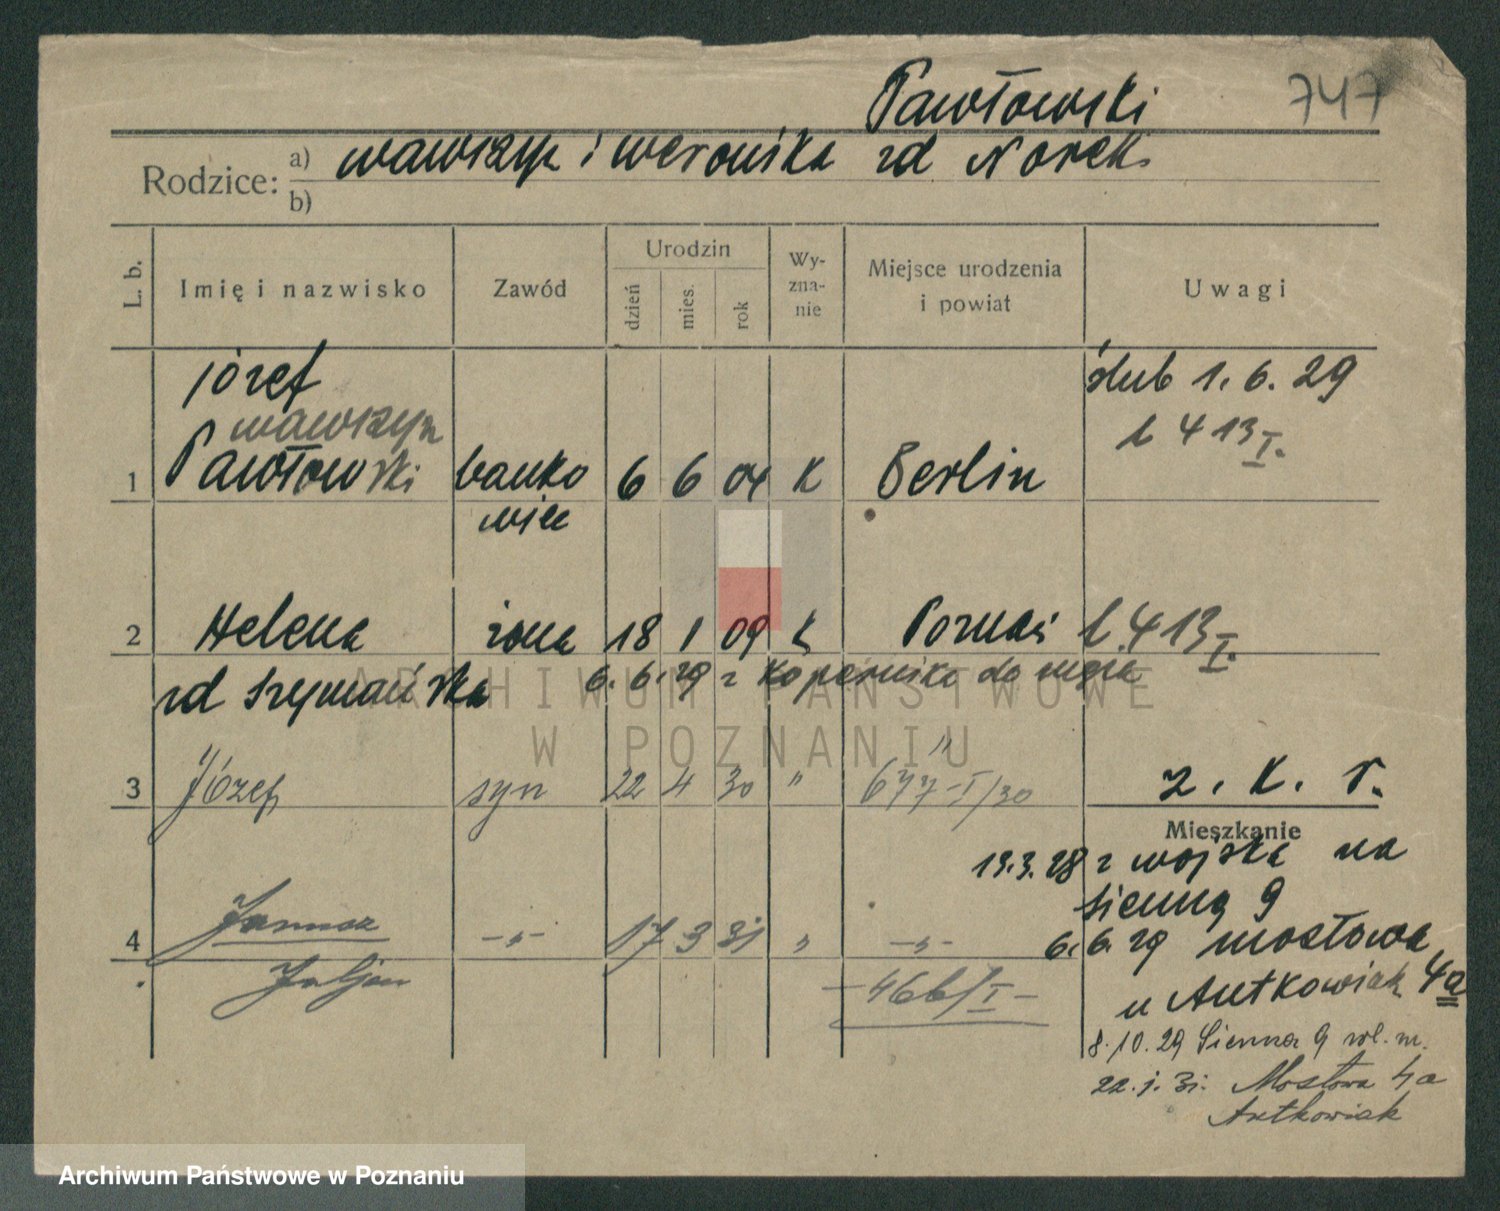 Pawłowski
747
Rodzice:
a) Wawrzyn i Weronika zd Norek
b)
L. b.
Imię i nazwisko
Zawód
Urodzin
dzień
mies.
rok
Wy-
zna-
nie
Miejsce urodzenia
i powiat
Uwagi
Józef
Wawrzyn
1 Pawłowski banko 6 6 04 K Berlin
wiec
ślub 1.6.29
b 413 I.
2 Helena żona 18 1 09 k Poznań b. 413 I.
zd Szymańska 6.6.29 z Kopernika do męża
ARCHIWUM PAŃSTWOWE
W POZNANIU
3 Józef syn 22 4 30 " " 677-I/30
z. K. r.
Mieszkanie
13.3.28 z wojska na
Sienną 9
4 Janusz -"- 17 3 31 " -"-
Juljan
-466/I-
6.6.29 Mostowa
u Antkowiak 4a
8.10.29 Sienna 9 wł. m.
22.1.31. Mostowa 4a
Antkowiak
Archiwum Państwowe w Poznaniu